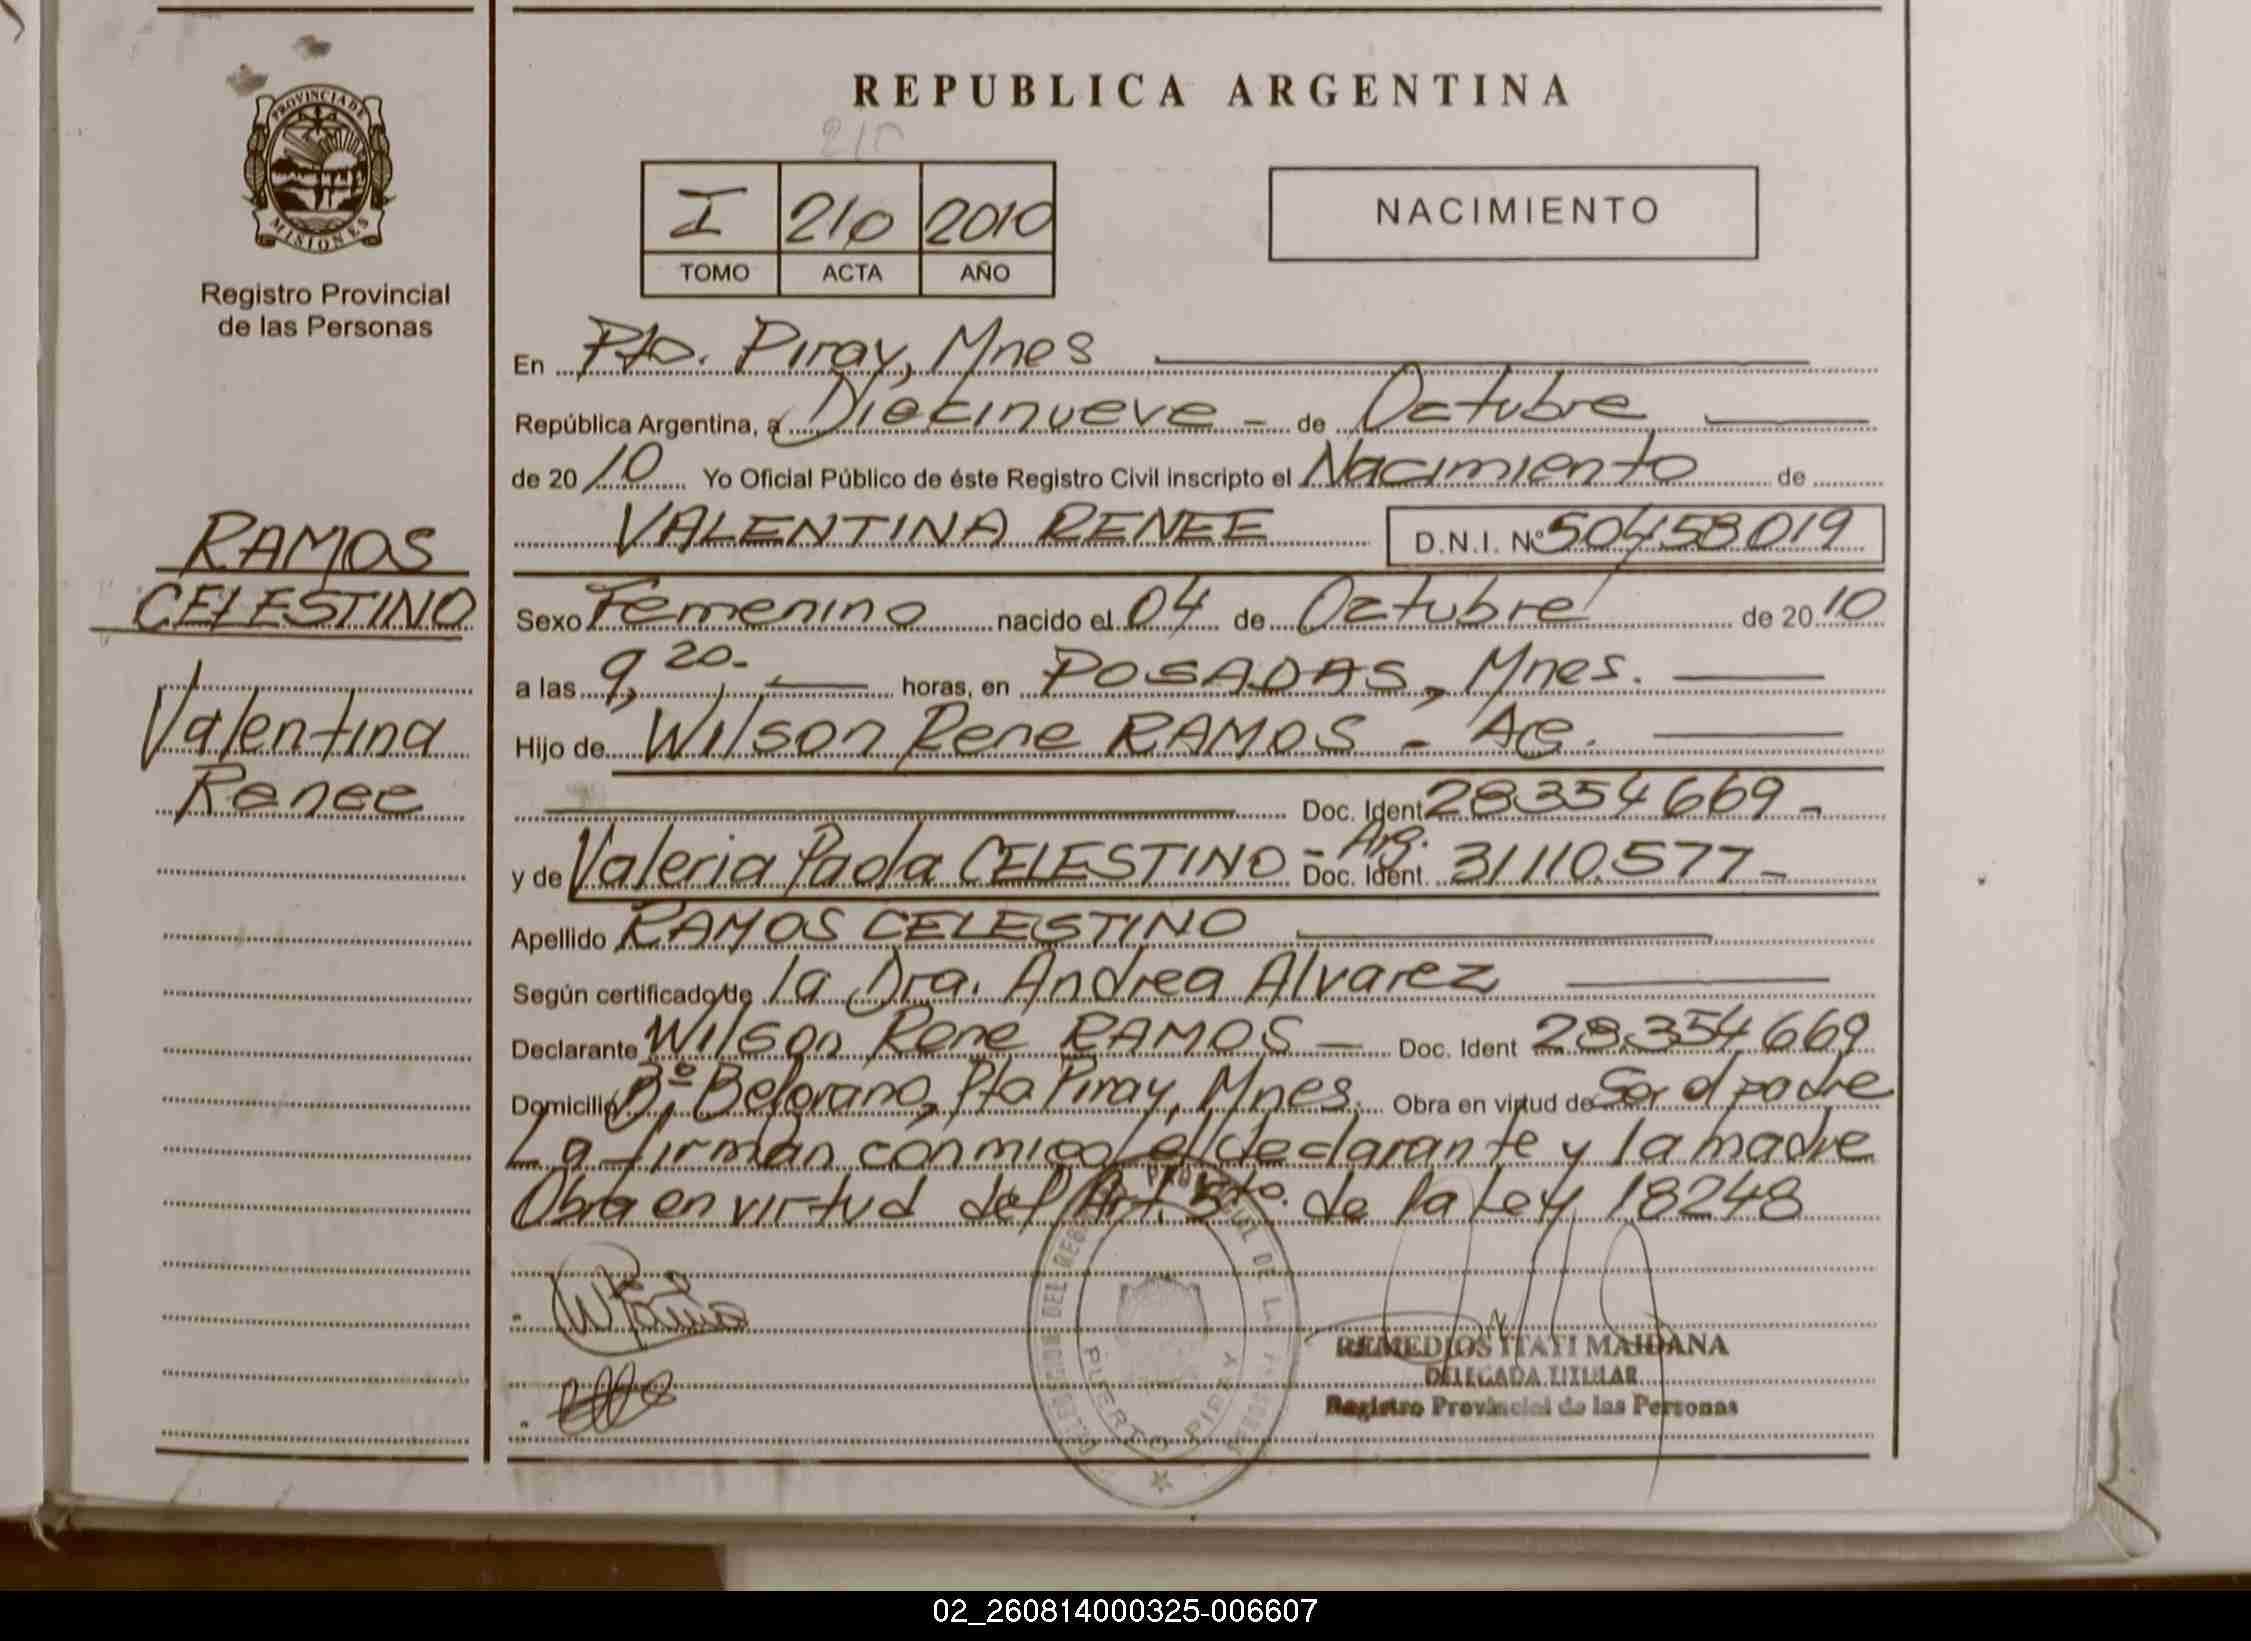 REPUBLICA ARGENTINA
PROVINCIA DE
MISIONES
Registro Provincial
de las Personas
210
I 210 2010
TOMO ACTA AÑO
NACIMIENTO
En Pto. Piray, Mnes
República Argentina, a Diecinueve - de Octubre
de 20 10 Yo Oficial Público de éste Registro Civil inscripto el Nacimiento de
VALENTINA RENEE D.N.I. Nº 50458019
RAMOS
CELESTINO
Valentina
Renee
Sexo Femenino nacido el 04 de Octubre de 20 10
a las 9,20.- horas, en POSADAS, Mnes.
Hijo de Wilson Rene RAMOS - Arg.
Doc. Ident 28354669-
y de Valeria Paola CELESTINO - Arg. Doc. Ident. 31110.577-
Apellido RAMOS CELESTINO
Según certificado de la Dra. Andrea Alvarez
Declarante Wilson Rene RAMOS - Doc. Ident 28.354669
Domicilio Bº Belgrano, Pto Piray, Mnes. Obra en virtud de Ser el padre
La firman conmigo el declarante y la madre
Obra en virtud del Art. 5to. de la Ley 18248
REMEDIOS ITATI MAIDANA
DELEGADA TITULAR
Registro Provincial de las Personas
PUERTO PIRAY
02_260814000325-006607